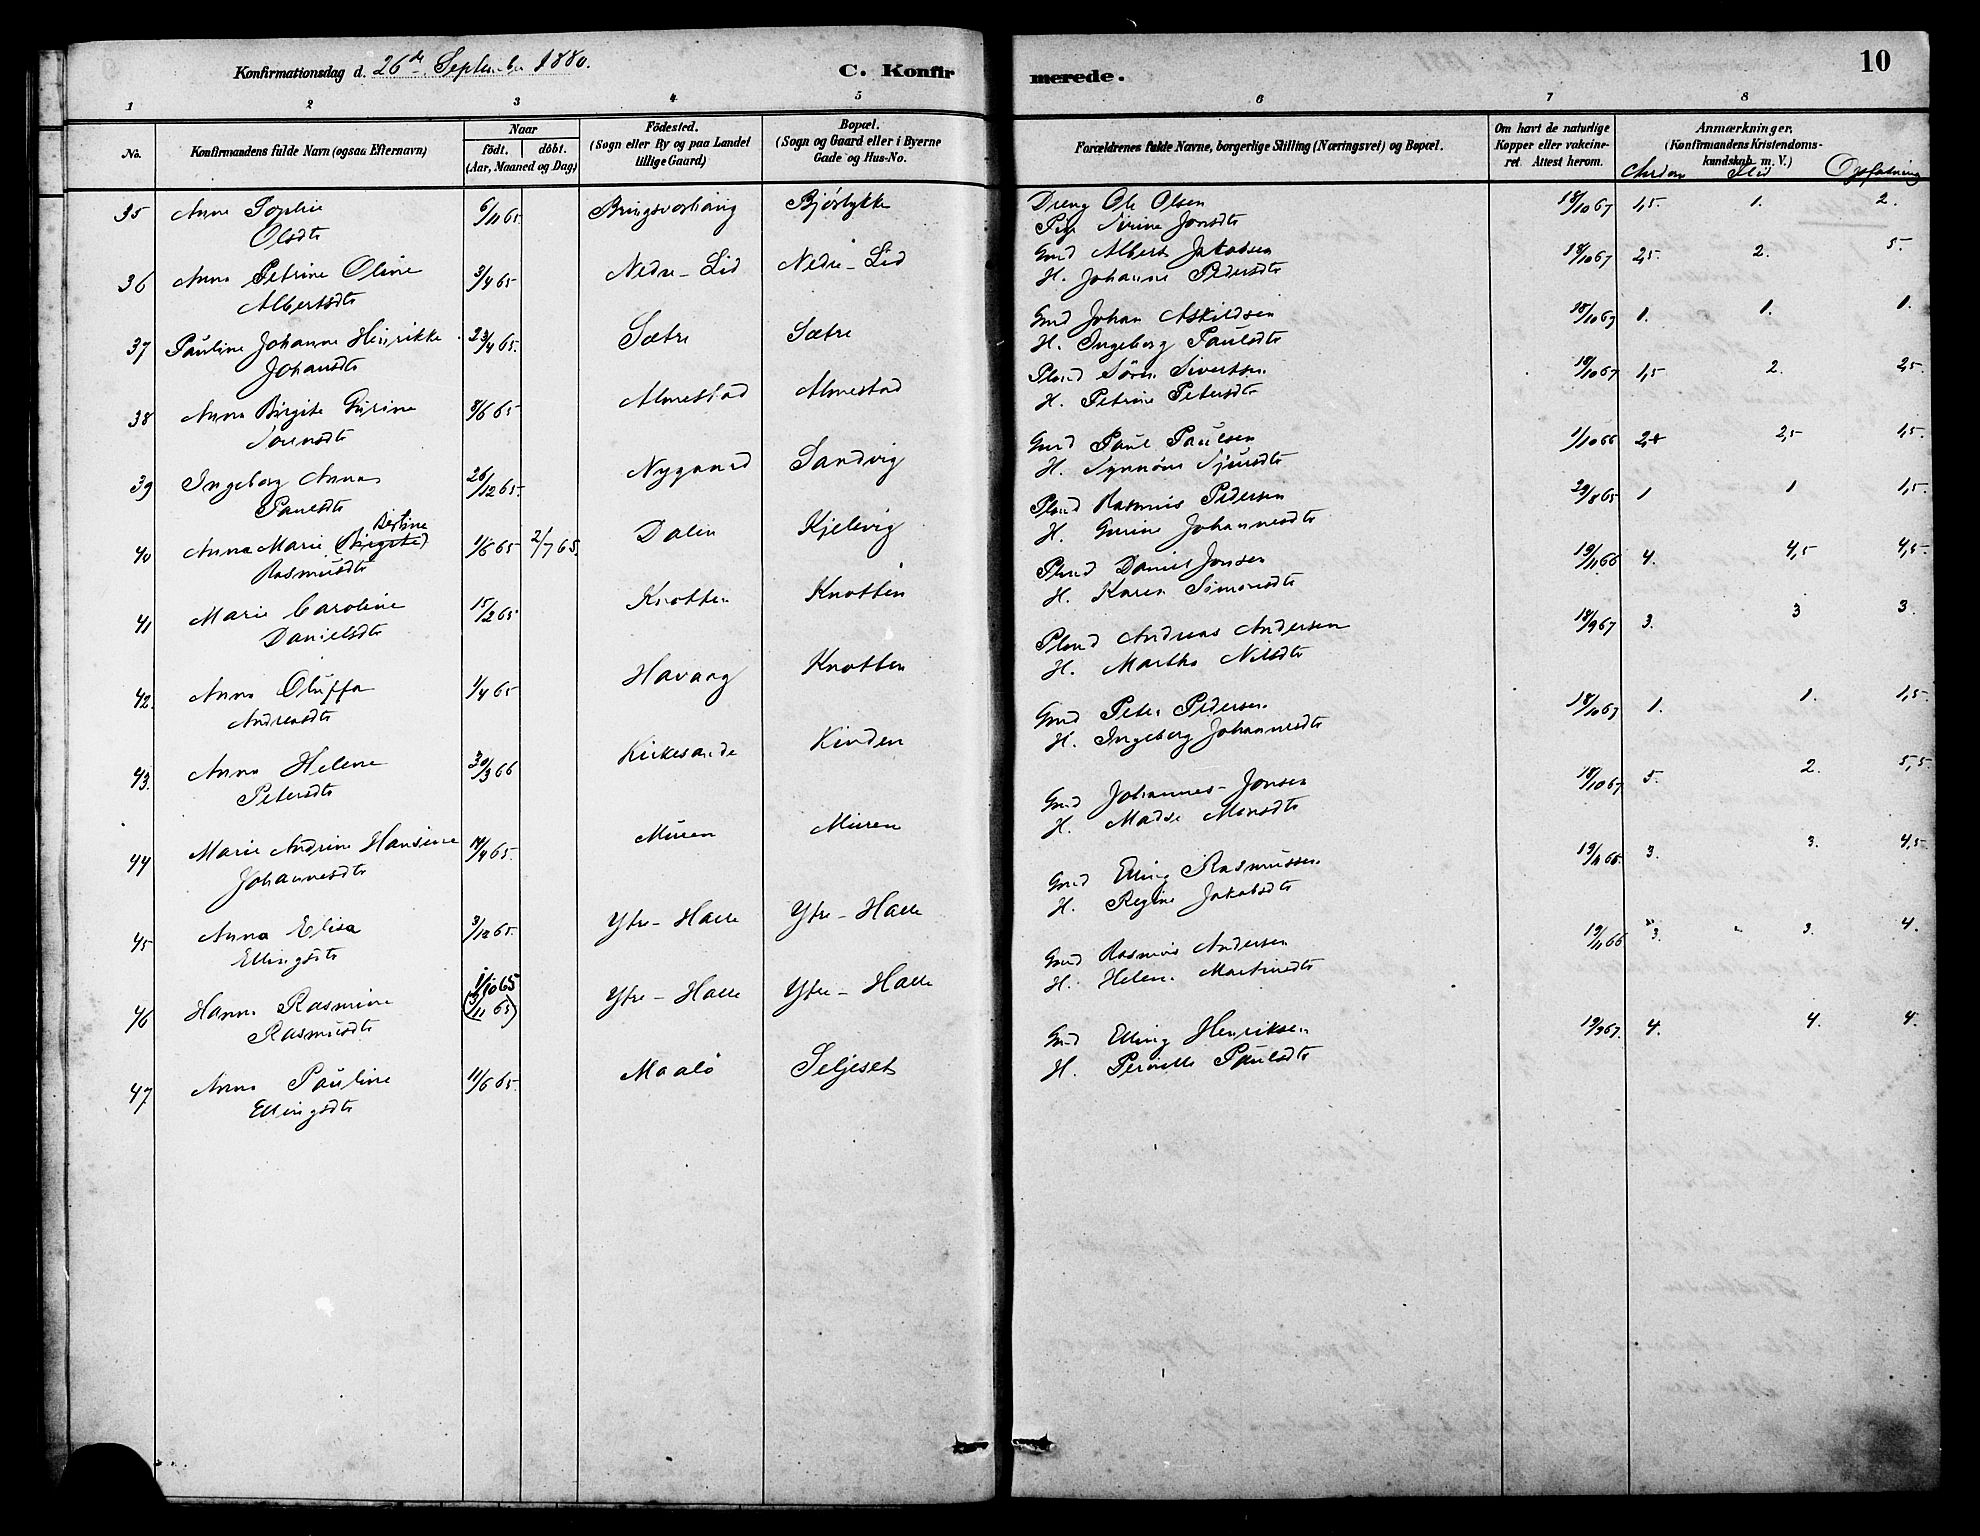 Konfirmationsdag d. 26de September 1880.
C. Konfirmerede.
10
1 2 3 4 5 6 7 8
No.
Konfirmandens fulde Navn (ogsaa Efternavn)
Naar
födt. döbt.
(Aar, Maaned og Dag)
Födested.
(Sogn eller By og paa Landet
tillige Gaard)
Bopæl.
(Sogn og Gaard eller i Byerne
Gade og Hus-No.
Forældrenes fulde Navne, borgerlige Stilling (Næringsvei) og Bopæl.
Om havt de naturlige
Kopper eller vakcine-
ret. Attest herom.
Anmærkninger,
(Konfirmandens Kristendoms-
kundskab m. V.)
Flid Opfatning
35 Anne Sophie 6/11 65 Bjørlykke Dreng Ole Olsen 18/10 67 1,5. 1. 2.
Olsdtr Pige Sirine Jonsdtr
36 Anna Petrine Oline 3/4 65 Nedre-Lid Nedre-Lid Gmd Albert Jakobsen 18/10 67 2,5 2. 5.
Albertsdtr H. Johanne Pedersdtr
37 Pauline Johanne Henrikke 23/4 65. Sætre Sætre Gmd Johan Askildsen 18/10 67 1. 1. 1.
Johansdtr H. Ingeborg Paulsdtr
38 Anna Birgite Gurine 8/6 65 Almestad Almestad Plmd Sören Sivertsen 18/10 67 1,5 2. 2,5.
Sörensdtr H. Petrine Petersdtr
39 Ingeborg Anna 26/12 65. Nygaard Sandvig Gmd Paul Paulsen 1/10 66 2,5 1,5.
Paulsdtr H. Synnöve Sjursdtr
40 Anna Marie (Birgite) Bertine 1/6 65 2/7 65. Dalen Kjelvig Plmd Rasmus Pedersen 29/8 65 1 1 1,5.
Rasmusdtr H. Gurine Johannesdtr
41 Marie Caroline 15/2 65 Knotten Knotten Plmd Daniel Jonsen 19/11 66 4. 4,5 4,5.
Danielsdtr H. Karen Simonsdtr
42. Anna Oluffa 1/4 65 Havaag Knotten Plmd Andreas Andersen 18/9 67 3. 3 3.
Andreasdtr H. Martha Nilsdtr
43. Anna Helene 30/3 66 Kirkesande Kinden Gmd Peter Pedersen 18/10 67 1. 1. 1,5.
Petersdtr H. Ingeborg Johannesdtr
44 Marie Andrine Hansine 17/4 65. Muren Muren Gmd Johannes Jonsen 18/10 67 5. 2. 5,5.
Johannesdtr H. Madse Monsdtr
45 Anna Elisa 3/12 65. Ytre-Halle Ytre-Halle Gmd Elling Rasmussen 3. 3. 4,5
Ellingsdtr H. Regine Jakobsdtr
46 Hanna Rasmine 1/10 65 (3/11 65) Ytre-Halle Ytre-Halle Gmd Rasmus Andersen 19/11 66 3. 3. 4.
Rasmusdtr H. Helene Martinsdtr
47 Anna Pauline 11/6 65. Maalö Seljeset Gmd Elling Henriksen 19/9 67. 4. 4. 4.
Ellingsdtr H. Pernille Paulsdtr